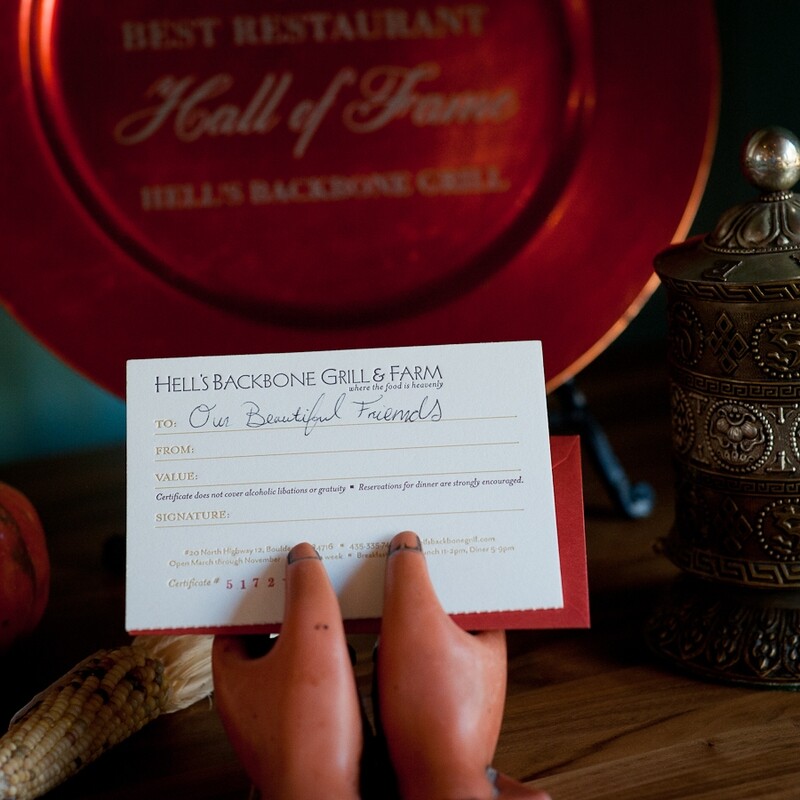 BEST RESTAURANT
Hall of Fame
HELL'S BACKBONE GRILL
HELL'S BACKBONE GRILL & FARM
where the food is heavenly
TO: Our Beautiful Friends
FROM:
VALUE:
Certificate does not cover alcoholic libations or gratuity ▪ Reservations for dinner are strongly encouraged.
SIGNATURE:
#20 North Highway 12, 435-335
Open March through November week 11-2pm, Diner 5-9pm
Certificate # 5172